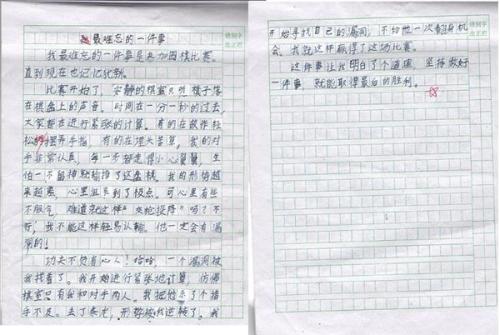 最难忘的一件事
我最难忘的一件事是参加围棋比赛。
直到现在也记忆犹新。
比赛开始了，安静的棋室只听棋子落
在棋盘上的声音。时间在一分一秒的过去，
大家都在进行紧张的计算。有的在故作轻
松的摆弄手指，有的在埋头苦算。我的对
手非常认真，每一步都走得小心翼翼，生
怕一不留神就输掉了这盘棋。我的形势越
来越紧，心里
到了极点。可心里有些
不服气，难道就这样“
”吗？不
行，我不能这样轻易认输，他一定会有漏
洞的！
功夫不负有心人！哈哈，一个漏洞被
我找着了。我开始进行紧张地计算，仿佛
棋室只有我和对手两人。我把他杀了个措
手不及。去了
，形势被我逆转了。我
开始寻找自己的漏洞，不给他一次翻身机
会。我就这样赢得了这场比赛。
这件事让我明白了个道理，坚持做好
一件事，就能取得最后的胜利。